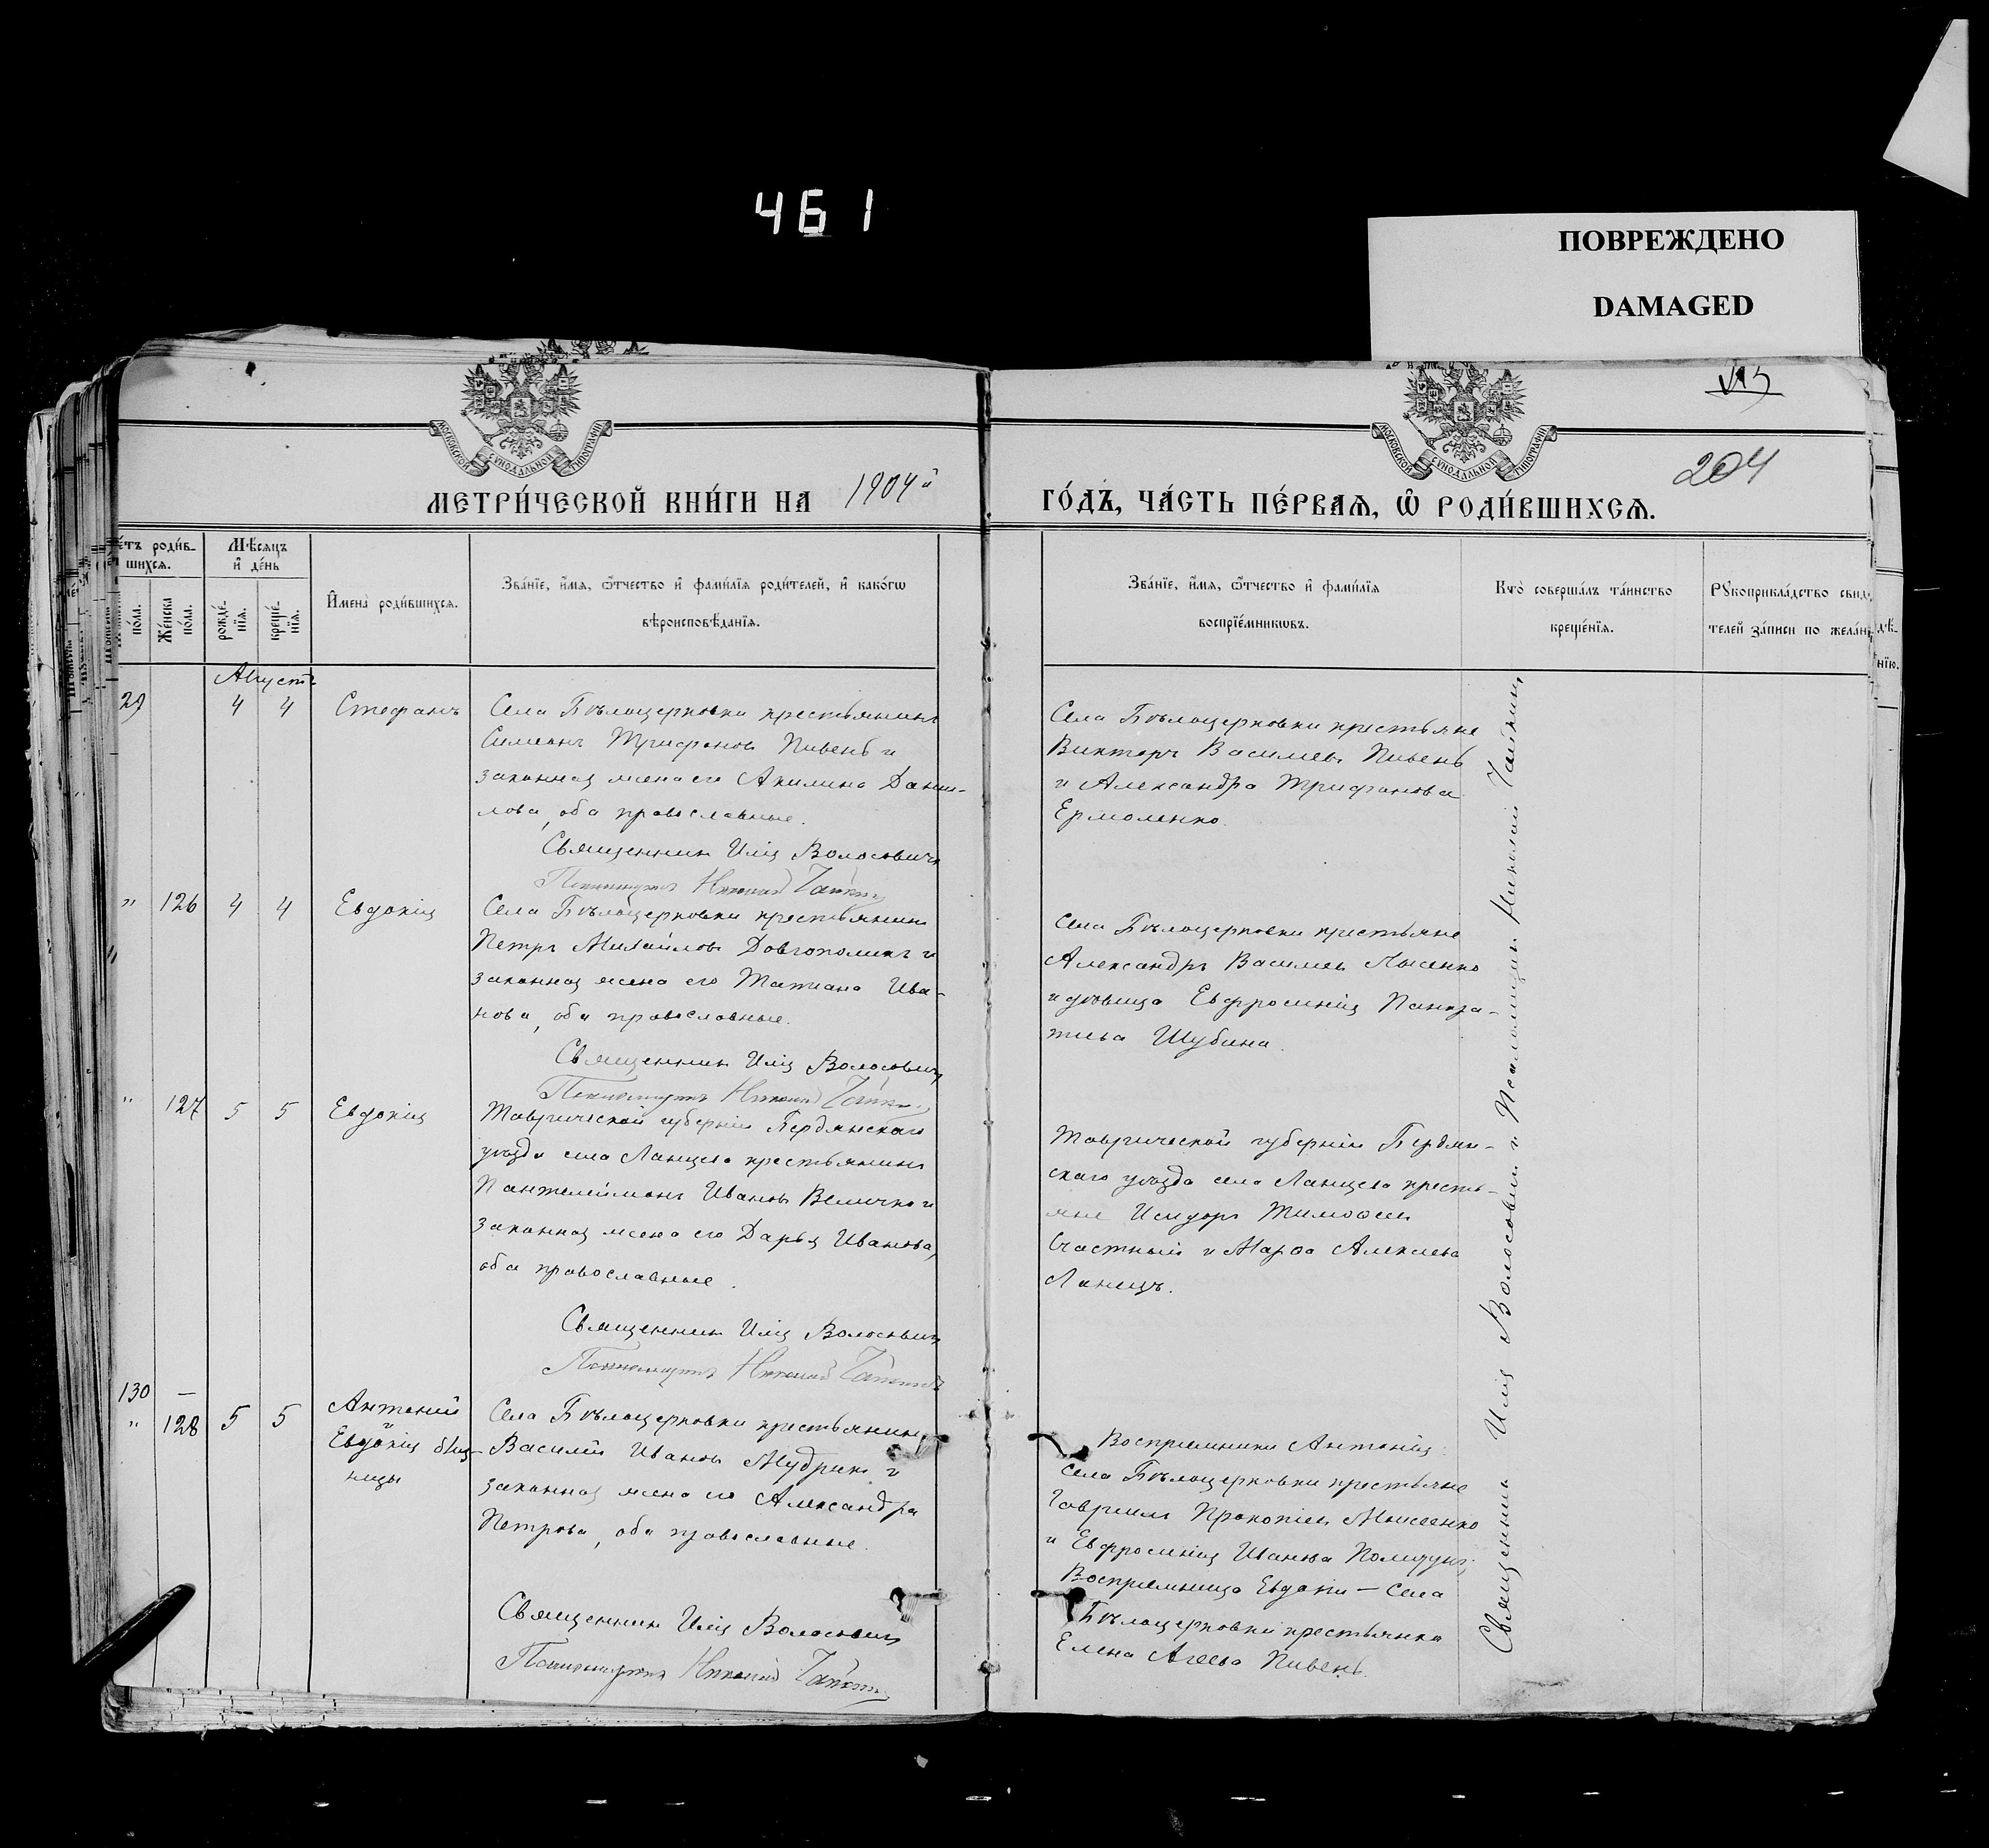 461
ПОВРЕЖДЕНО
DAMAGED
МОСКОВСКОЙ СУНОДАЛЬНОЙ ТИПОГРАФІИ
МОСКОВСКОЙ СУНОДАЛЬНОЙ ТИПОГРАФІИ
204
МЕТРИ́ЧЕСКОЙ КНИ́ГИ НА 1904й
ГО́ДЪ, ЧА́СТЬ ПЕ́РВАѦ, Ѽ РОДИ́ВШИХСѦ.
е́тъ роди́в-
шихсѧ.
пола.
Же́нска
по́ла.
Мѣ́сѧцъ
и҆ де́нь
рожде́-
нїѧ.
креще́-
нїѧ.
И҆мена̀ роди́вшихсѧ.
Зва́нїе, и҆́мѧ, ѻ҆́тчество и҆ фами́лїѧ роди́телей, и҆ како́гѡ
вѣроисповѣ́данїѧ.
Зва́нїе, и҆́мѧ, ѻ҆́тчество и҆ фами́лїѧ
воспрїе́мникѡвъ.
Кто̀ соверша́лъ та́инство
креще́нїѧ.
Рꙋкоприкла́дство свид
телей за́писи по жела́н
дѣ-
нїю.
Августъ
29 4 4 Стефанъ
Села Бѣлоцерковки крестьянинъ
Симеонъ Трифоновъ Пивень и
законная жена его Акилина Дани-
лова, оба православные.
Священникъ Илія Волосовичъ
Псаломщикъ Николай
Села Бѣлоцерковки крестьяне
Викторъ Васильевъ Пивень
и Александра Трифонова
Ермоленко.
" 126 4 4 Евдокія
Села Бѣлоцерковки крестьянинъ
Петръ Михайловъ Довгополикъ и
законная жена его Татіана Ива-
нова, оба православные.
Священникъ Илія Волосовичъ
Псаломщикъ Николай
Села Бѣлоцерковки крестьяне
Александръ Васильевъ Лысенко
и дѣвица Евфросинія Панкра-
тьева Шубина.
" 127 5 5 Евдокія
Таврической губерніи Бердянскаго
уѣзда села Ланцева крестьянинъ
Пантелеймонъ Ивановъ Величко и
законная жена его Дарья Иванова,
оба православные.
Священникъ Илія Волосовичъ
Псаломщикъ Николай
Таврической губерніи Бердян-
скаго уѣзда села Ланцева кресть-
яне Исидоръ Тимоѳеевъ
Счастный и Марѳа Алексѣева
Ланецъ.
130 —
" 128 5 5 Антоній
и
Евдокія близ-
ницы
Села Бѣлоцерковки крестьянинъ
Василій Ивановъ Мудрикъ и
законная жена его Александра
Петрова, оба православные.
Священникъ Илія Волосовичъ
Псаломщикъ Николай
Воспріемники Антонія:
Села Бѣлоцерковки крестьяне
Гавріилъ Прокопіевъ Моисеенко
и Евфросинія Иванова
Воспріемница Евдокіи — села
Бѣлоцерковки крестьянка
Елена Агеева Пивень.
Священникъ Илія Волосовичъ и Псаломщикъ Николай